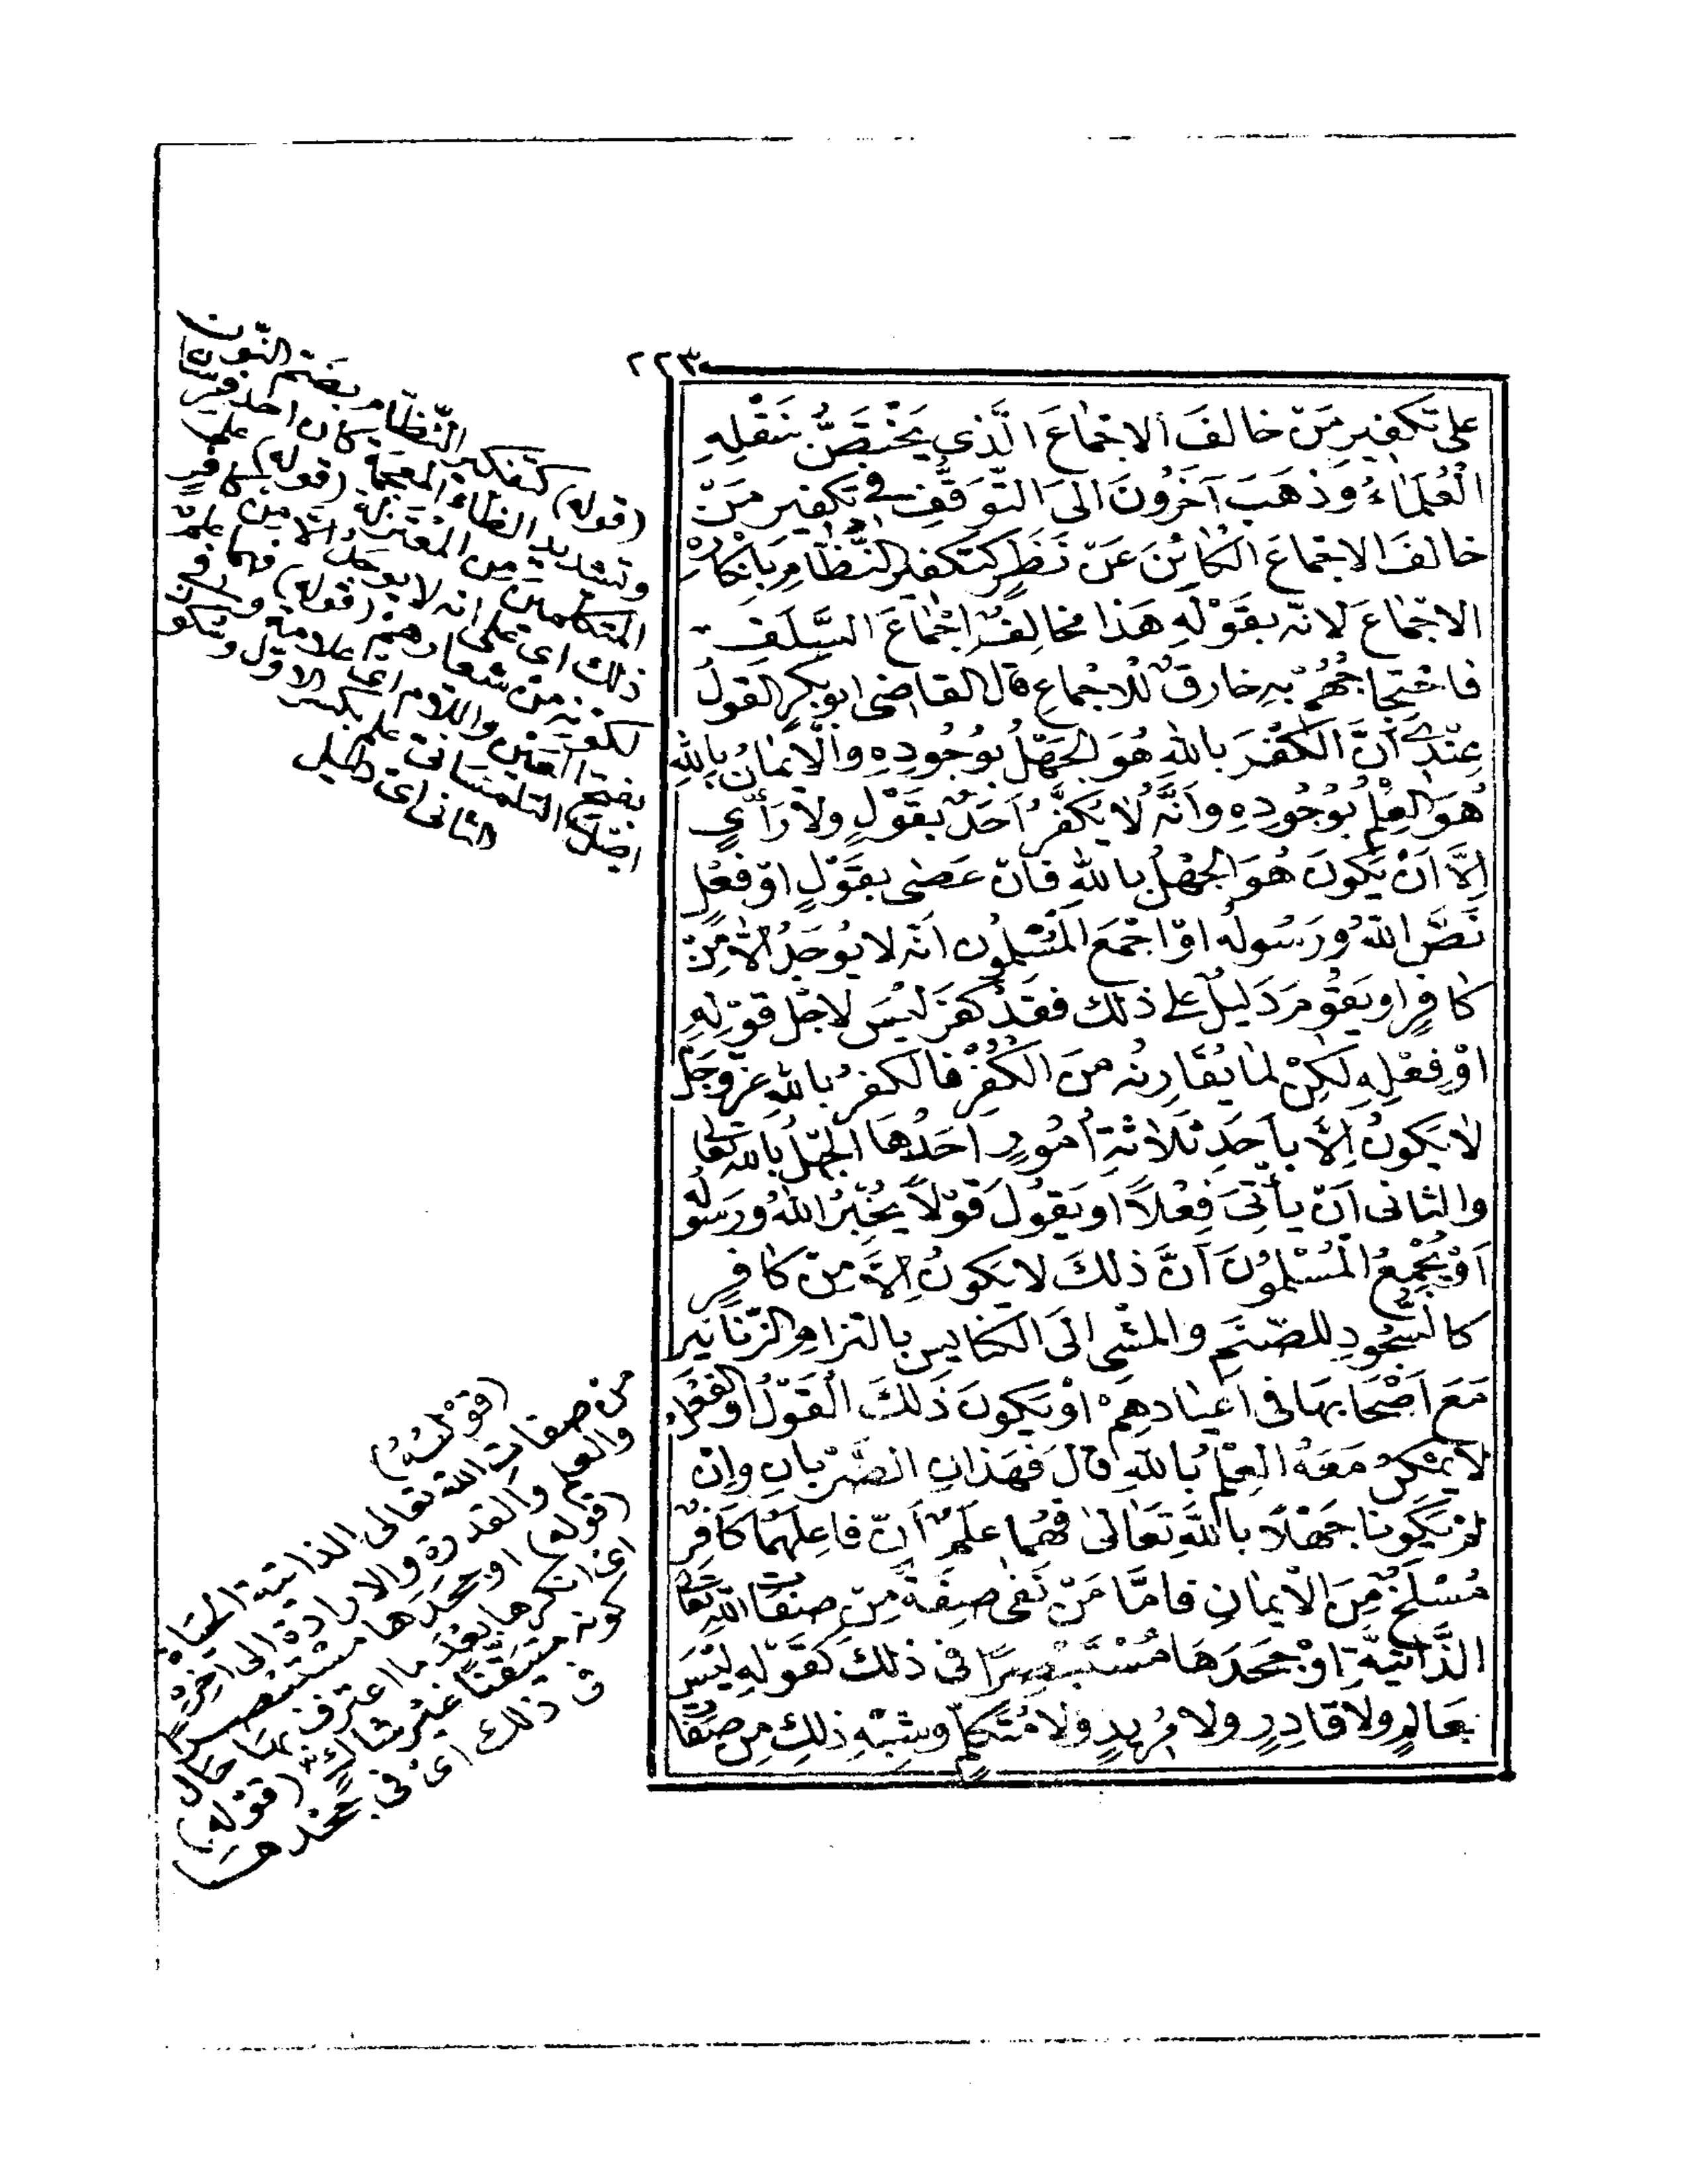 ٢٢٣
على تكفير من خالف الاجماع الذي يختصّ بنقله
العلماء وذهب آخرون الى التوقف في تكفير من
خالف الاجماع الكائن عن نظر كتكفير النظّام بانكاره
الاجماع لانّه بقوله هذا مخالف اجماع السلف
فاحتجاجهم به خارق للاجماع قال القاضى ابو بكر القول
عندى انّ الكفر بالله هو الجهل بوجوده والايمان بالله
هو العلم بوجوده وانّه لا يكفّر احد بقول ولا رأى
الّا ان يكون هو الجهل بالله فان عصى بقول او فعل
نصّ الله ورسوله او اجمع المسلمون انّه لا يوجد الّا من
كافر او يقوم دليل على ذلك فقد كفر ليس لاجل قوله
او فعله لكن لما يقارنه من الكفر فالكفر بالله عزّ وجلّ
لا يكون الّا باحد ثلاثة امور احدها الجهل بالله تعالى
والثانى ان يأتى فعلًا او يقول قولًا يخبر الله ورسوله
او يجمع المسلمون انّ ذلك لا يكون الّا من كافر
كالسّجود للصنم والمشى الى الكنايس بالتزام الزنانير
مع اصحابها فى اعيادهم او يكون ذلك القول او الفعل
لا يمكن معه العلم بالله قال فهذان الضّربان وان
لم يكونا جهلًا بالله تعالى فهما علم انّ فاعلهما كافر
مسلخ من الايمان فامّا من نفى صفة من صفات الله تعالى
الذّاتيّة او جحدها مستبصرًا فى ذلك كقوله ليس
بعالم ولا قادر ولا مريد ولا متكلّم وشبه ذلك من صفات
(قوله) كتفكير النّظّام بضمّ النّون
وتشديد الظاء المعجمة كان احد فرسان
المتكلمين من المعتزلة (قوله) على
ذلك اى على انه لا يوجد الّا من كافر
لكونه من شعارهم (قوله) فهما علم
بفتح العين واللام اى علامة وفى
اصل التلمسانى علم بكسر الاوّل وسكون
الثانى اى دليل
(قوله)
من صفات الله تعالى الذاتية الحياة
والعلم والقدرة والارادة الى آخره
(قوله) او جحدها مستبصرًا
اى انكرها بعد ما اعترف بها حال
كونه متيقّنًا غير شاكّ (قوله)
فى ذلك اى فى جحدها